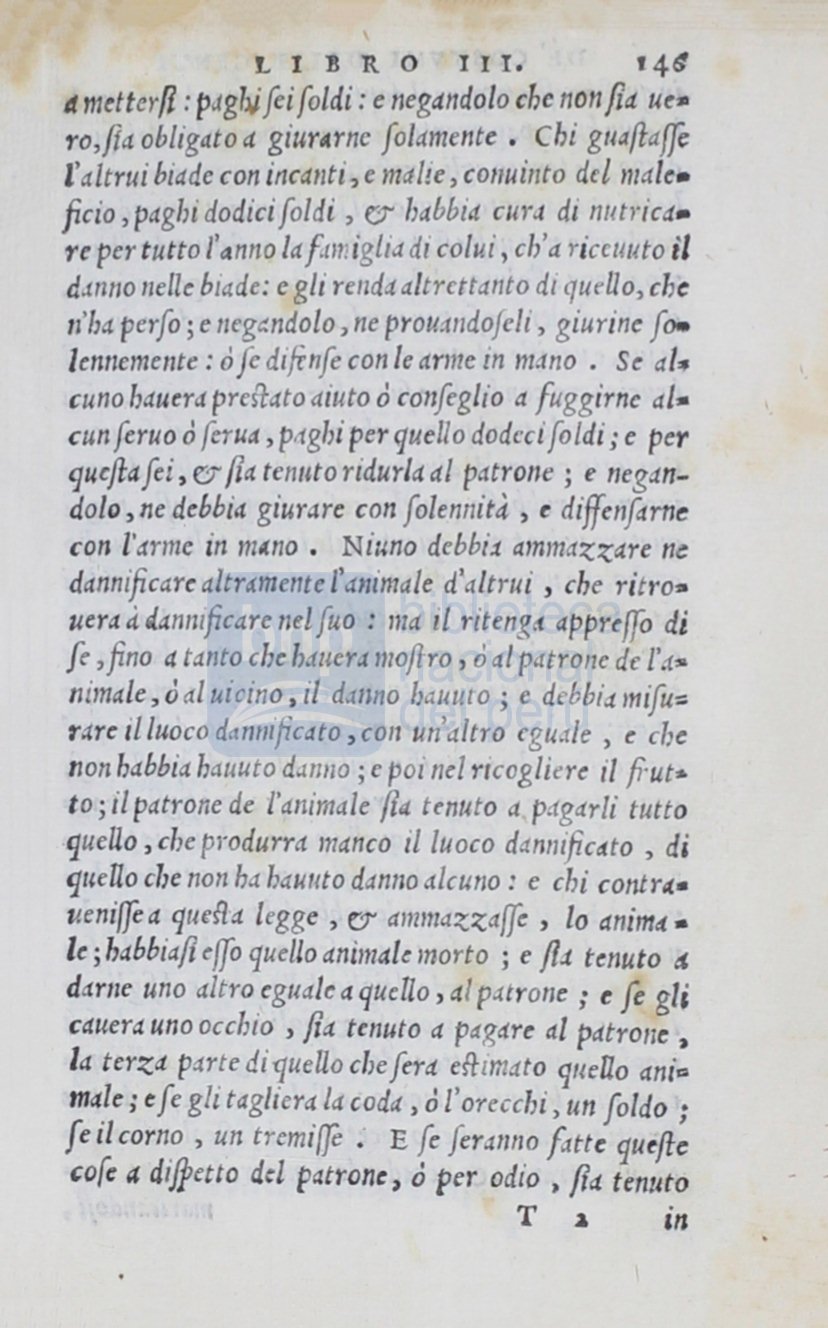 LIBRO III. 146
a metterſi : paghi ſei ſoldi : e negandolo che non ſia ue=
ro, ſia obligato a giurarne ſolamente . Chi guaſtaſſe
l'altrui biade con incanti, e malie, conuinto del male=
ficio, paghi dodici ſoldi , & habbia cura di nutrica=
re per tutto l'anno la famiglia di colui, ch'a riceuuto il
danno nelle biade: e gli renda altrettanto di quello, che
n'ha perſo ; e negandolo, ne prouandoſeli, giurine ſo=
lennemente : ò ſe difenſe con le arme in mano . Se al=
cuno hauera preſtato aiuto ò conſeglio a fuggirne al=
cun ſeruo ò ſerua, paghi per quello dodeci ſoldi ; e per
queſta ſei, & ſia tenuto ridurla al patrone ; e negan-
dolo, ne debbia giurare con ſolennità , e diffenſarne
con l'arme in mano . Niuno debbia ammazzare ne
dannificare altramente l'animale d'altrui , che ritro=
uera à dannificare nel ſuo : ma il ritenga appreſſo di
ſe, fino a tanto che hauera moſtro, ò al patrone de l'a=
nimale, ò al uicino, il danno hauuto ; e debbia miſu=
rare il luoco dannificato, con un'altro eguale , e che
non habbia hauuto danno ; e poi nel ricogliere il frut=
to ; il patrone de l'animale ſia tenuto a pagarli tutto
quello, che produrra manco il luoco dannificato , di
quello che non ha hauuto danno alcuno : e chi contra=
ueniſſe a queſta legge , & ammazzaſſe , lo anima =
le ; habbiaſi eſſo quello animale morto ; e ſia tenuto a
darne uno altro eguale a quello, al patrone ; e ſe gli
cauera uno occhio , ſia tenuto a pagare al patrone ,
la terza parte di quello che ſera eſtimato quello ani=
male ; e ſe gli tagliera la coda, ò l'orecchi, un ſoldo ;
ſe il corno , un tremiſſe . E ſe ſeranno fatte queſte
coſe a diſpetto del patrone, ò per odio , ſia tenuto
T 2 in
bnp biblioteca
nacional
del perú